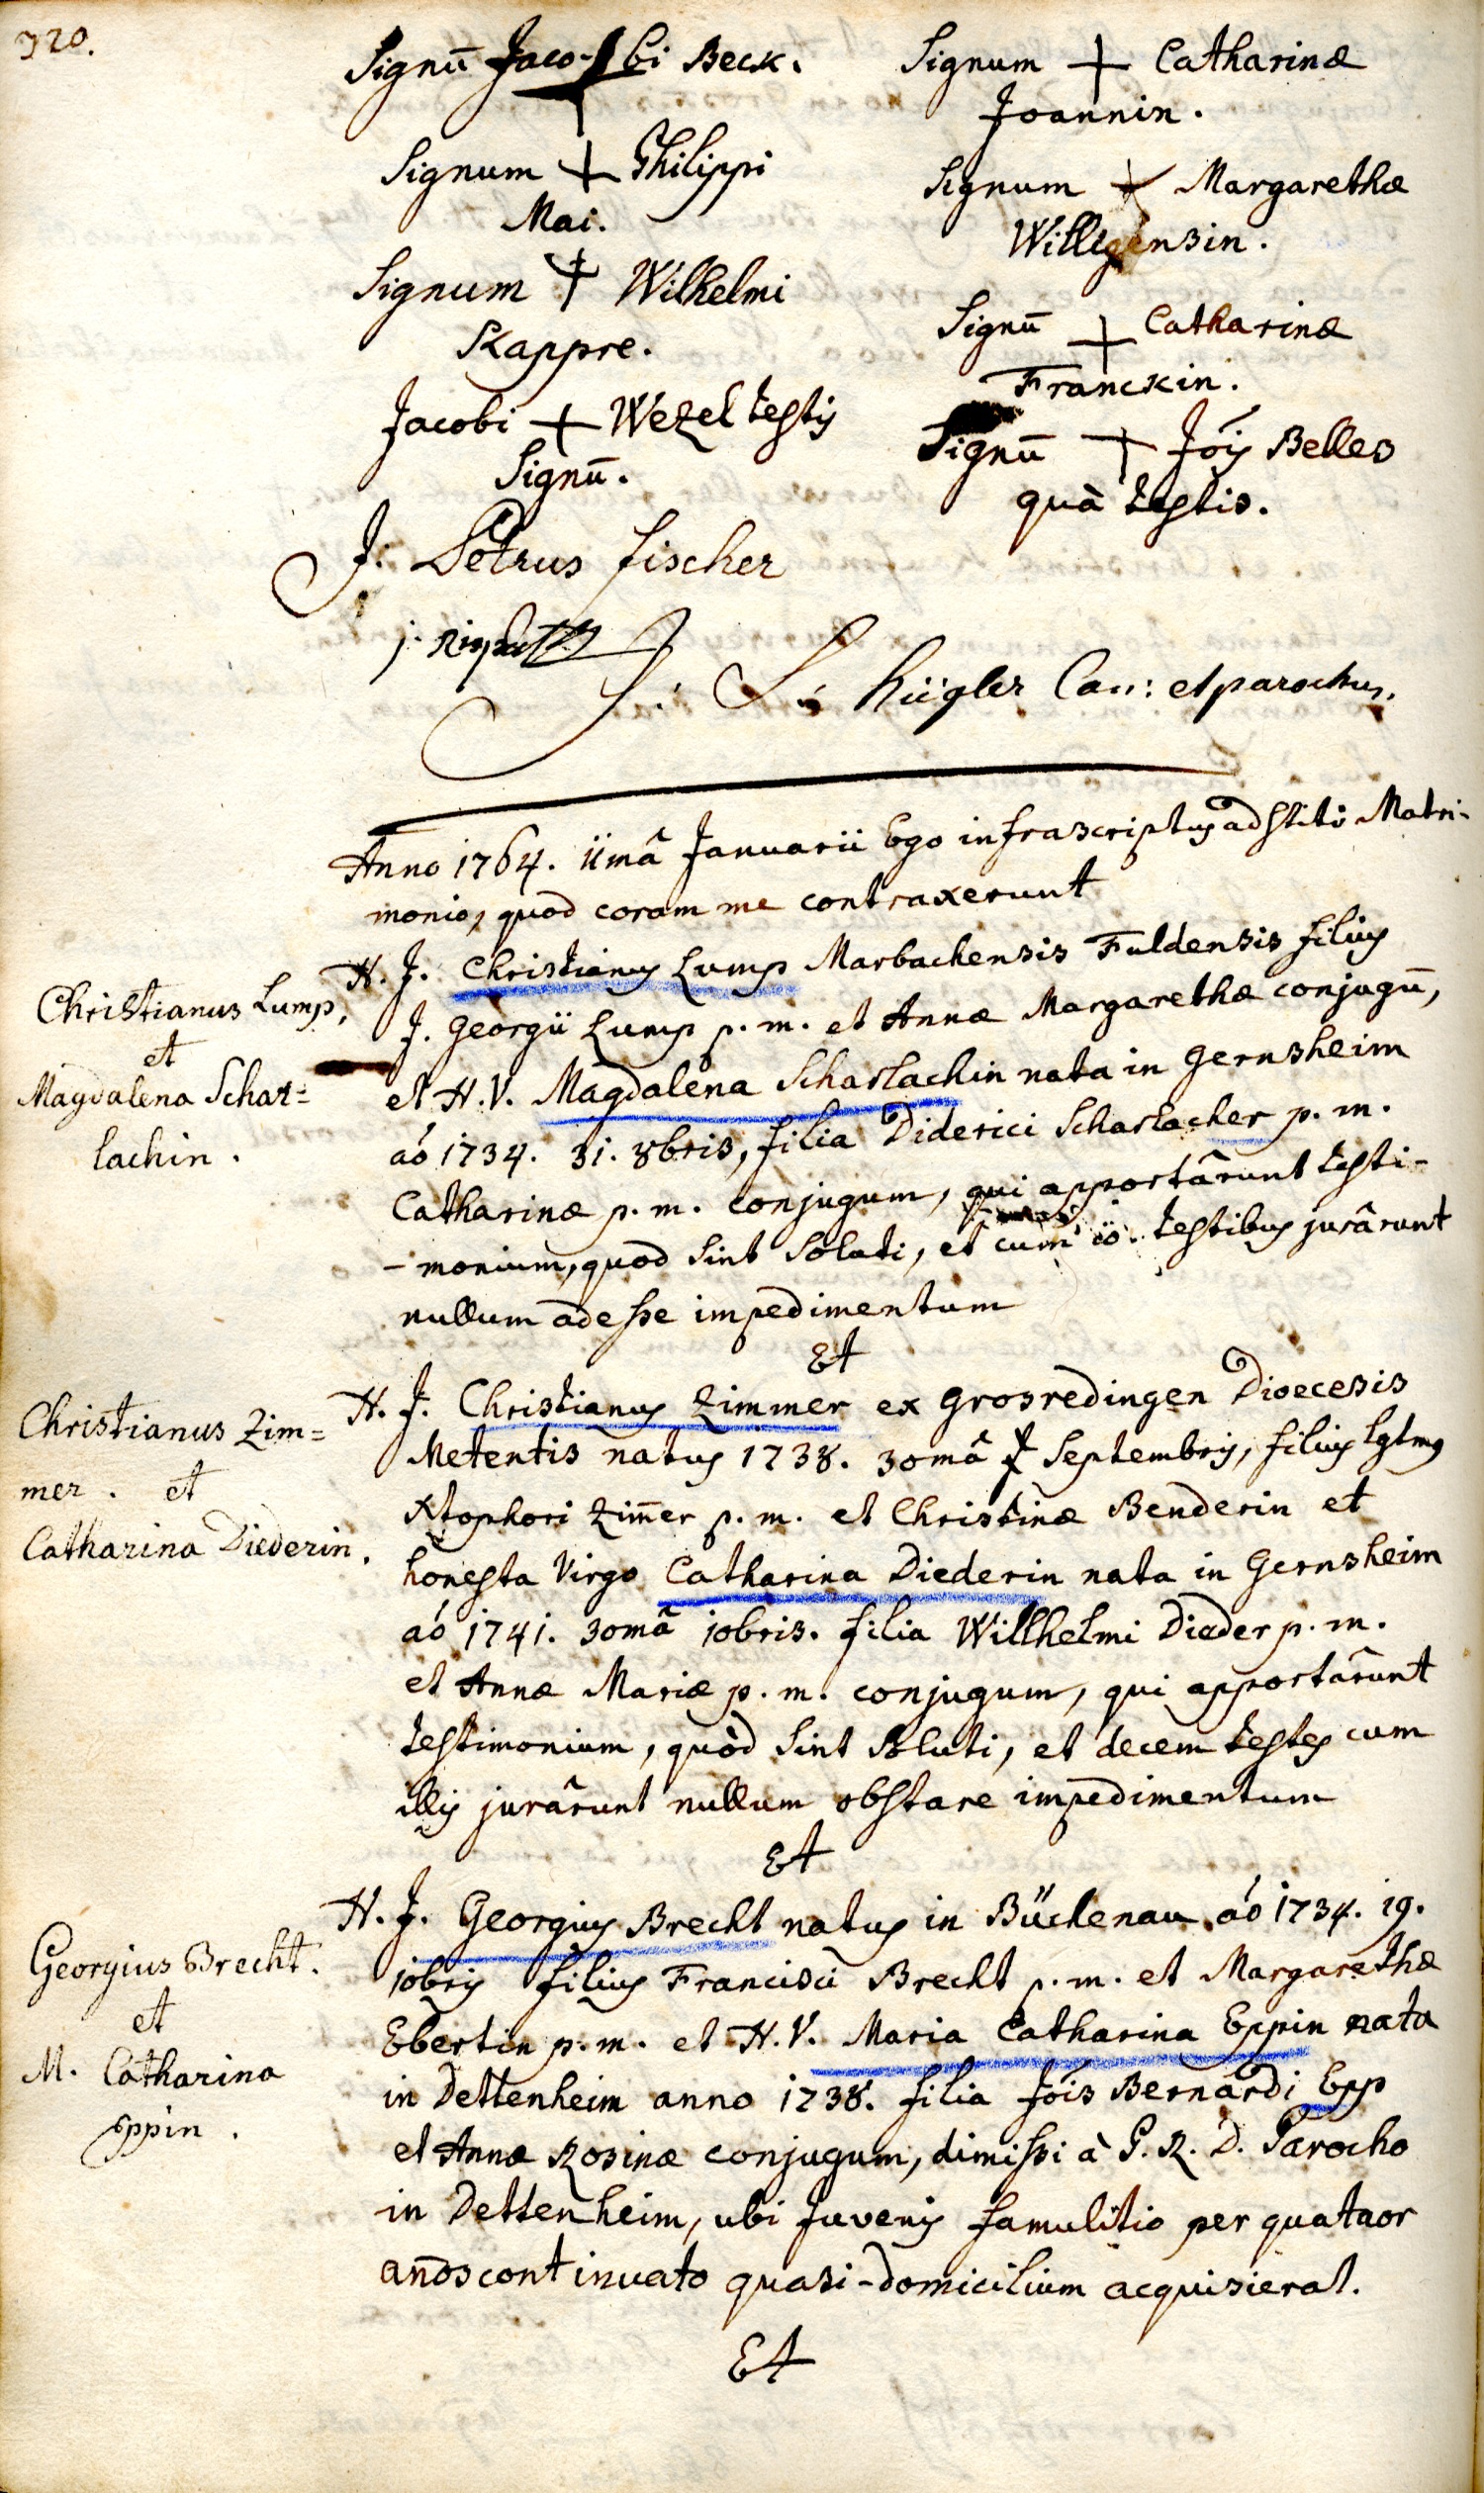 320.
Signū Jaco + bi Beck.
Signum + Philippi
Mai.
Signum + Wilhelmi
Kappre.
Jacobi + Wezel testis
Signū.
J: Petrus fischer
Signum + Catharinæ
Joannin.
Signum + Margarethæ
Willigensin.
Signū + Catharinæ
Franckin.
Signū + Jōis Belles
quà testis.
J: L: Kügler Can: et parochus.
Anno 1764. 11mâ Januarii Ego infrascriptus adstiti Matri-
monio, quod coram me contraxerunt
Christianus Lump,
et
Magdalena Schar=
lachin.
H. J. Christianus Lump Marbachensis Fuldensis filius
J. Georgii Lump p. m. et Annæ Margarethæ conjugū,
et H. V. Magdalena Scharlachin nata in Gernsheim
aó 1734. 31. 8bris, filia Diderici Scharlacher p. m.
Catharinæ p. m. conjugum, qui apportârunt testi-
-monium, quod sint soluti, et cum 10. testibus jurârunt
nullum adesse impedimentum
Et
Christianus Zim=
mer. et
Catharina Diederin.
H. J. Christianus Zimmer ex Grosredingen Dioecesis
Metentis natus 1738. 30mâ Septembris, filius lgtmg
Xtophori Zim̄er p. m. et Christinæ Benderin et
honesta Virgo Catharina Diederin nata in Gernsheim
aó 1741. 30mâ 10bris. filia Willhelmi Dieder p. m.
et Annæ Mariæ p. m. conjugum, qui apportârunt
testimonium, quòd sint soluti, et decem testes cum
illis jurârunt nullum obstare impedimentum
Et
Georgius Brecht.
et
M. Catharina
Eppin.
H. J. Georgius Brecht natus in Büchenau aó 1734. 19.
10bris filius Francisci Brecht p. m. et Margarethæ
Ebertin p. m. et H. V. Maria Catharina Eppin nata
in Dettenheim anno 1738. filia Jóis Bernardi Epp
et Annæ Rosinæ conjugum, dimissi à P. R. D. Parocho
in Dettenheim, ubi Juvenis famulitio per quatuor
an̄os continuato quasi-domicilium acquisierat.
Et